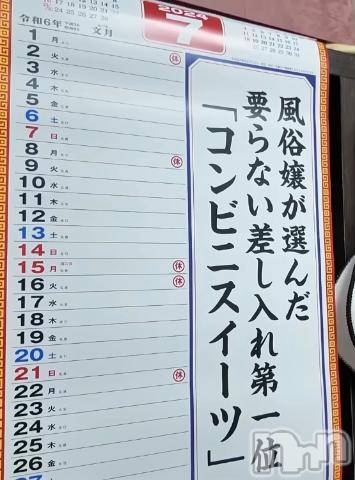 2024
7
令和6年
文月
風俗嬢が選んだ
要らない差し入れ第一位
「コンビニスイーツ」
1 月
2 火 休
3 水
4 木
5 金
6 土
7 日
8 月
9 火 休
10 水
11 木
12 金
13 土
14 日
15 月 休
16 火 休
17 水
18 木
19 金
20 土
21 日 休
22 月
23 火
24 水
25 木
26 金